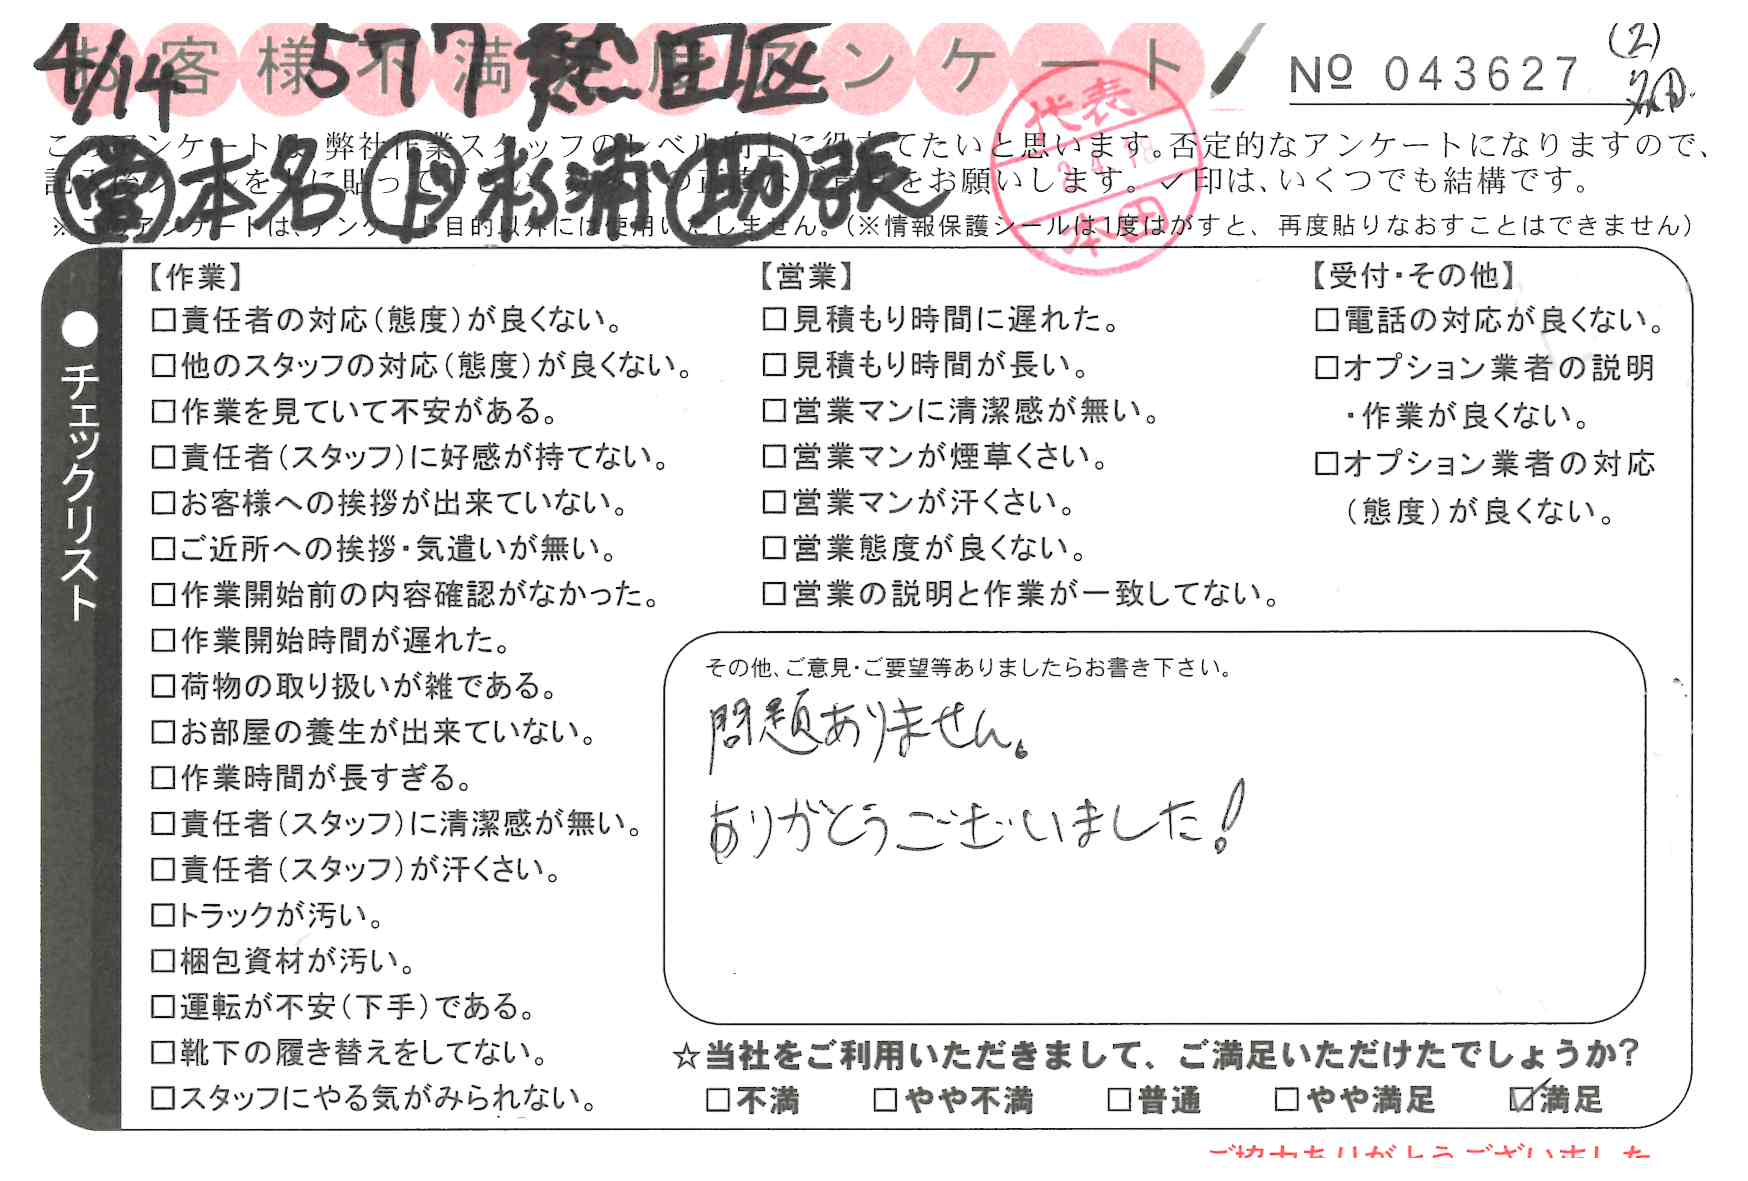 お客様不満足度アンケート
4/14 577 熱田区
№ 043627
(2)
代表
本田
堂 本名 ト 杉浦 助 張
このアンケートは、弊社作業スタッフのレベル向上に役立てたいと思います。否定的なアンケートになりますので、
をお願いします。✓印は、いくつでも結構です。
※このアンケートは、アンケート目的以外には使用いたしません。(※情報保護シールは1度はがすと、再度貼りなおすことはできません)
●チェックリスト
【作業】
□責任者の対応(態度)が良くない。
□他のスタッフの対応(態度)が良くない。
□作業を見ていて不安がある。
□責任者(スタッフ)に好感が持てない。
□お客様への挨拶が出来ていない。
□ご近所への挨拶・気遣いが無い。
□作業開始前の内容確認がなかった。
□作業開始時間が遅れた。
□荷物の取り扱いが雑である。
□お部屋の養生が出来ていない。
□作業時間が長すぎる。
□責任者(スタッフ)に清潔感が無い。
□責任者(スタッフ)が汗くさい。
□トラックが汚い。
□梱包資材が汚い。
□運転が不安(下手)である。
□靴下の履き替えをしてない。
□スタッフにやる気がみられない。
【営業】
□見積もり時間に遅れた。
□見積もり時間が長い。
□営業マンに清潔感が無い。
□営業マンが煙草くさい。
□営業マンが汗くさい。
□営業態度が良くない。
□営業の説明と作業が一致してない。
【受付・その他】
□電話の対応が良くない。
□オプション業者の説明
・作業が良くない。
□オプション業者の対応
(態度)が良くない。
その他、ご意見・ご要望等ありましたらお書き下さい。
問題ありません。
ありがとうございました!
☆当社をご利用いただきまして、ご満足いただけたでしょうか?
□不満 □やや不満 □普通 □やや満足 ☑満足
ご協力ありがとうございました